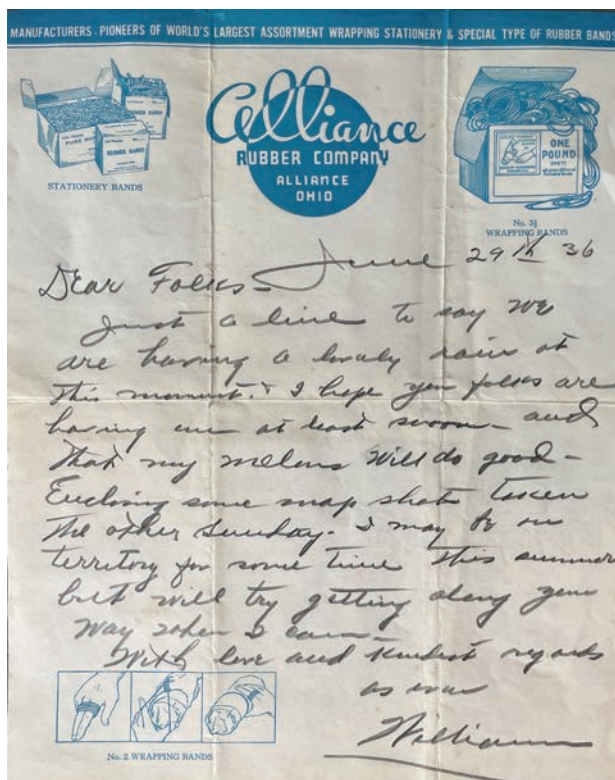 MANUFACTURERS - PIONEERS OF WORLD'S LARGEST ASSORTMENT WRAPPING STATIONERY & SPECIAL TYPE OF RUBBER BANDS
Alliance
RUBBER COMPANY
ALLIANCE
OHIO
STATIONERY BANDS
RUBBER BANDS
RUBBER BANDS
ONE
POUND
No. 3½
WRAPPING BANDS
June 29th 36
Dear Folks-
Just a line to say we
are having a lovely rain at
this moment. & I hope you folks are
having one at least soon - and
that my melons will do good -
Enclosing some snap shots taken
the other Sunday. I may be on
territory for some time this summer
but will try getting along your
way when I can -
With love and kindest regards
as ever
William
No. 2 WRAPPING BANDS